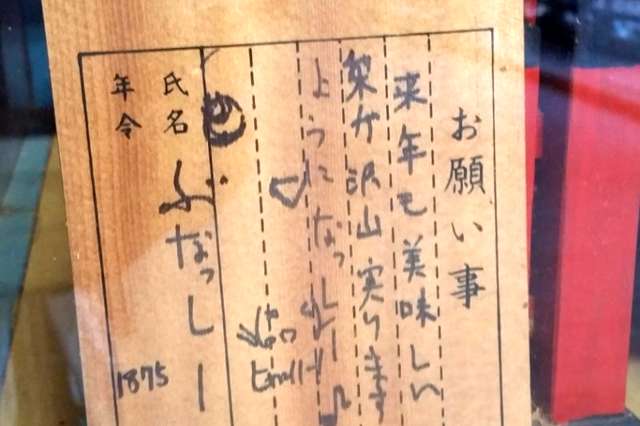 お願い事
来年も美味しい
梨が沢山実ります
ようになっしー
氏名 ふなっしー
年令 1875